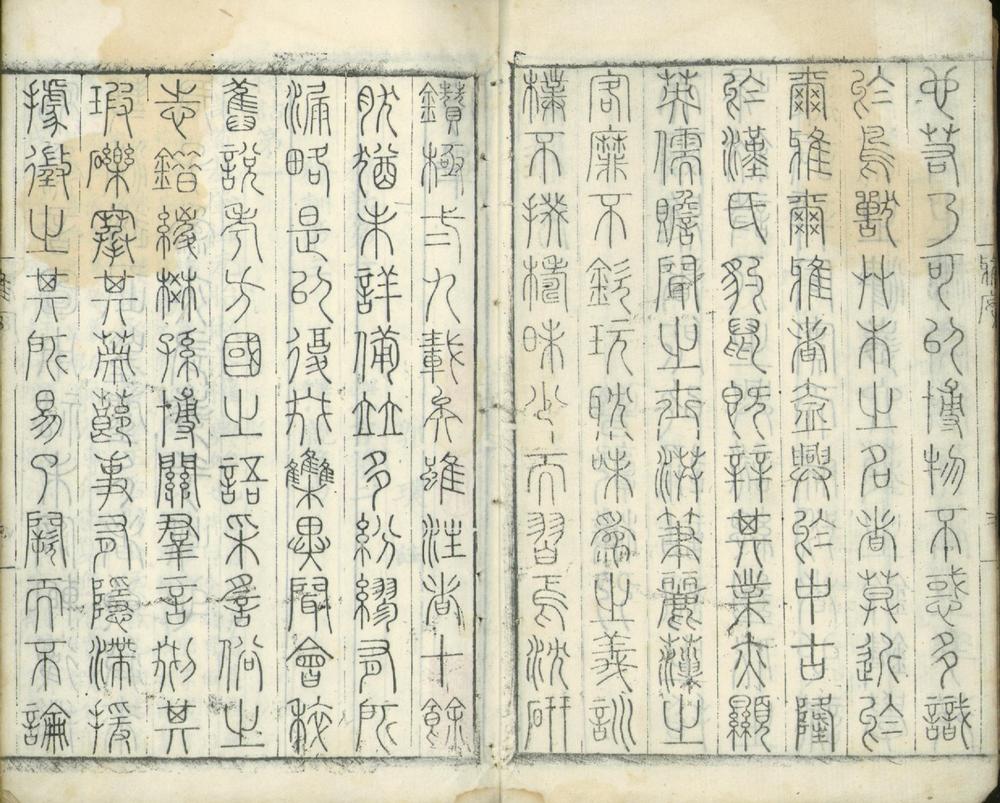 也若乃可以博物不惑多識
於鳥獸艸木之名者莫近於
爾雅爾雅者蓋興於中古隆
於漢氏豹鼠既辯其業亦顯
英儒贍聞之士洪筆麗藻之
客靡不欽玩耽味爲之義訓
璞不揆檮昧少而習焉沈研
鑽極二九載矣雖注者十餘
然猶未詳備竝多紛謬有所
漏略是以復綴集異聞會稡
舊說考方國之語采謠俗之
志錯綜樊孫博關羣言剟其
瑕礫搴其蕭稂事有隱滯援
據徵之其所易了闕而不論